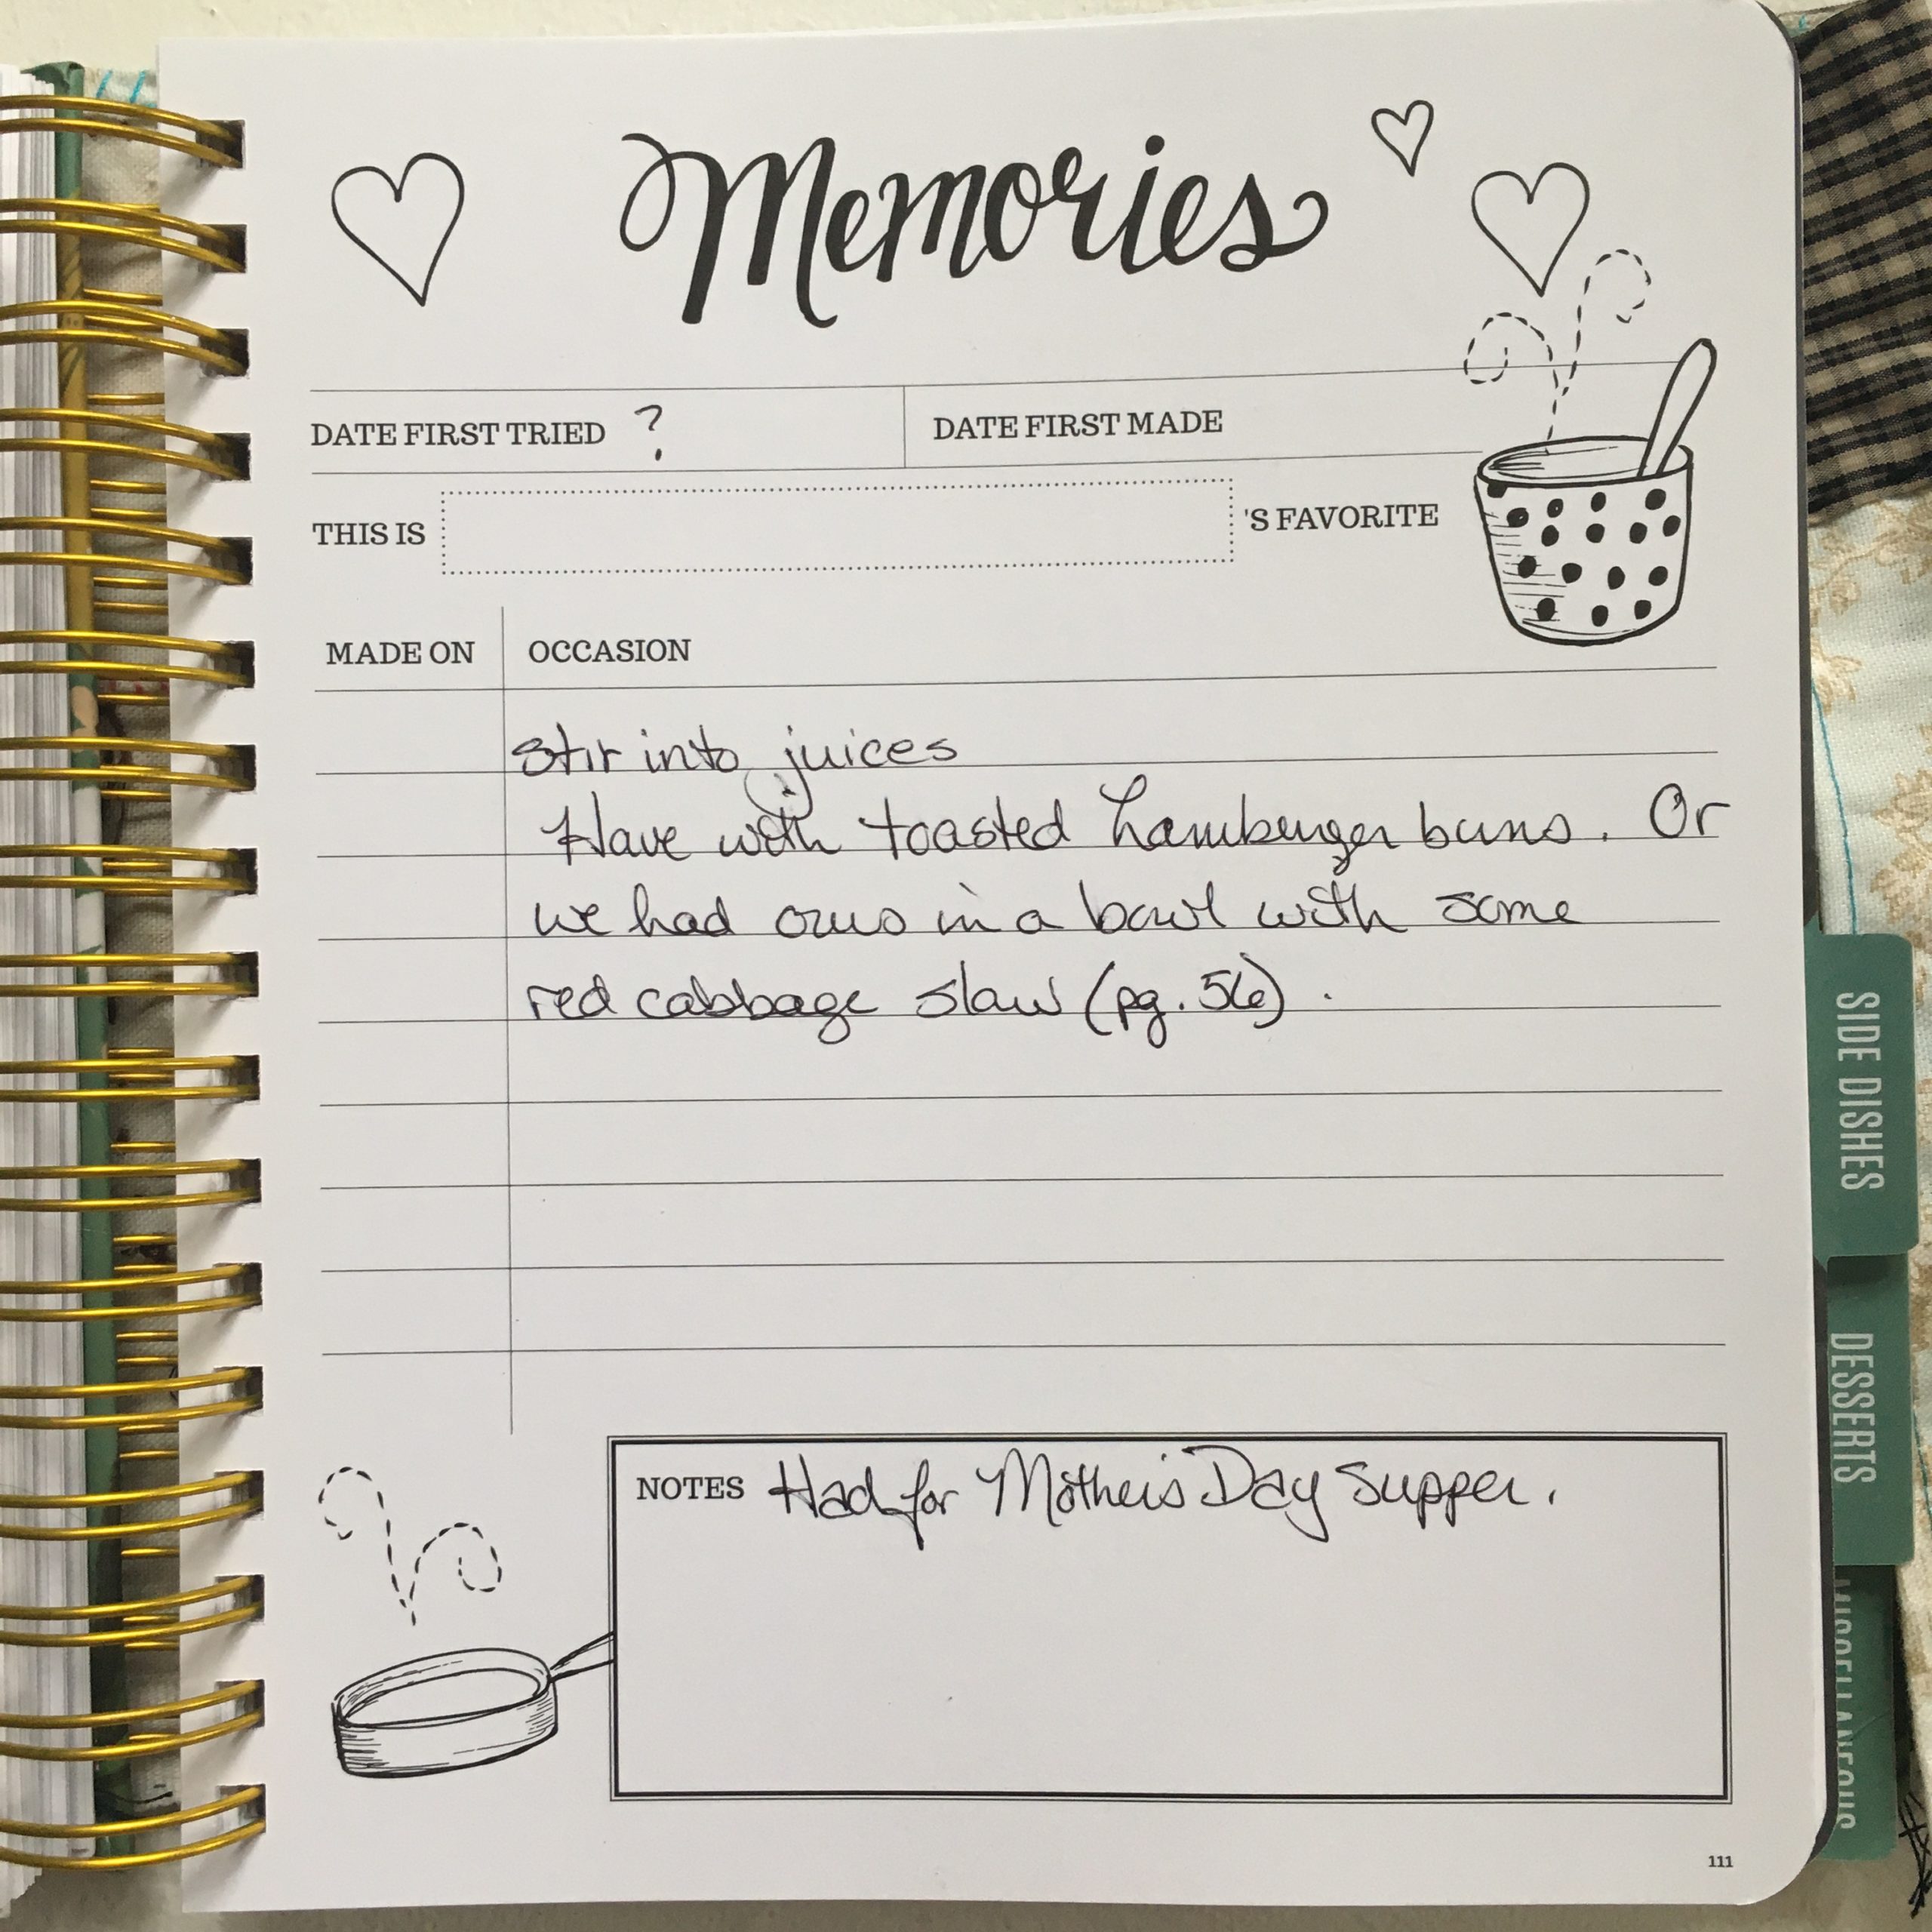 Memories
DATE FIRST TRIED ?
DATE FIRST MADE
THIS IS 'S FAVORITE
MADE ON
OCCASION
stir into juices
Have with toasted hamburger buns. Or
we had ours in a bowl with some
red cabbage slaw (pg. 56).
NOTES Had for Mother's Day Supper.
111
SIDE DISHES
DESSERTS
MISCELLANEOUS